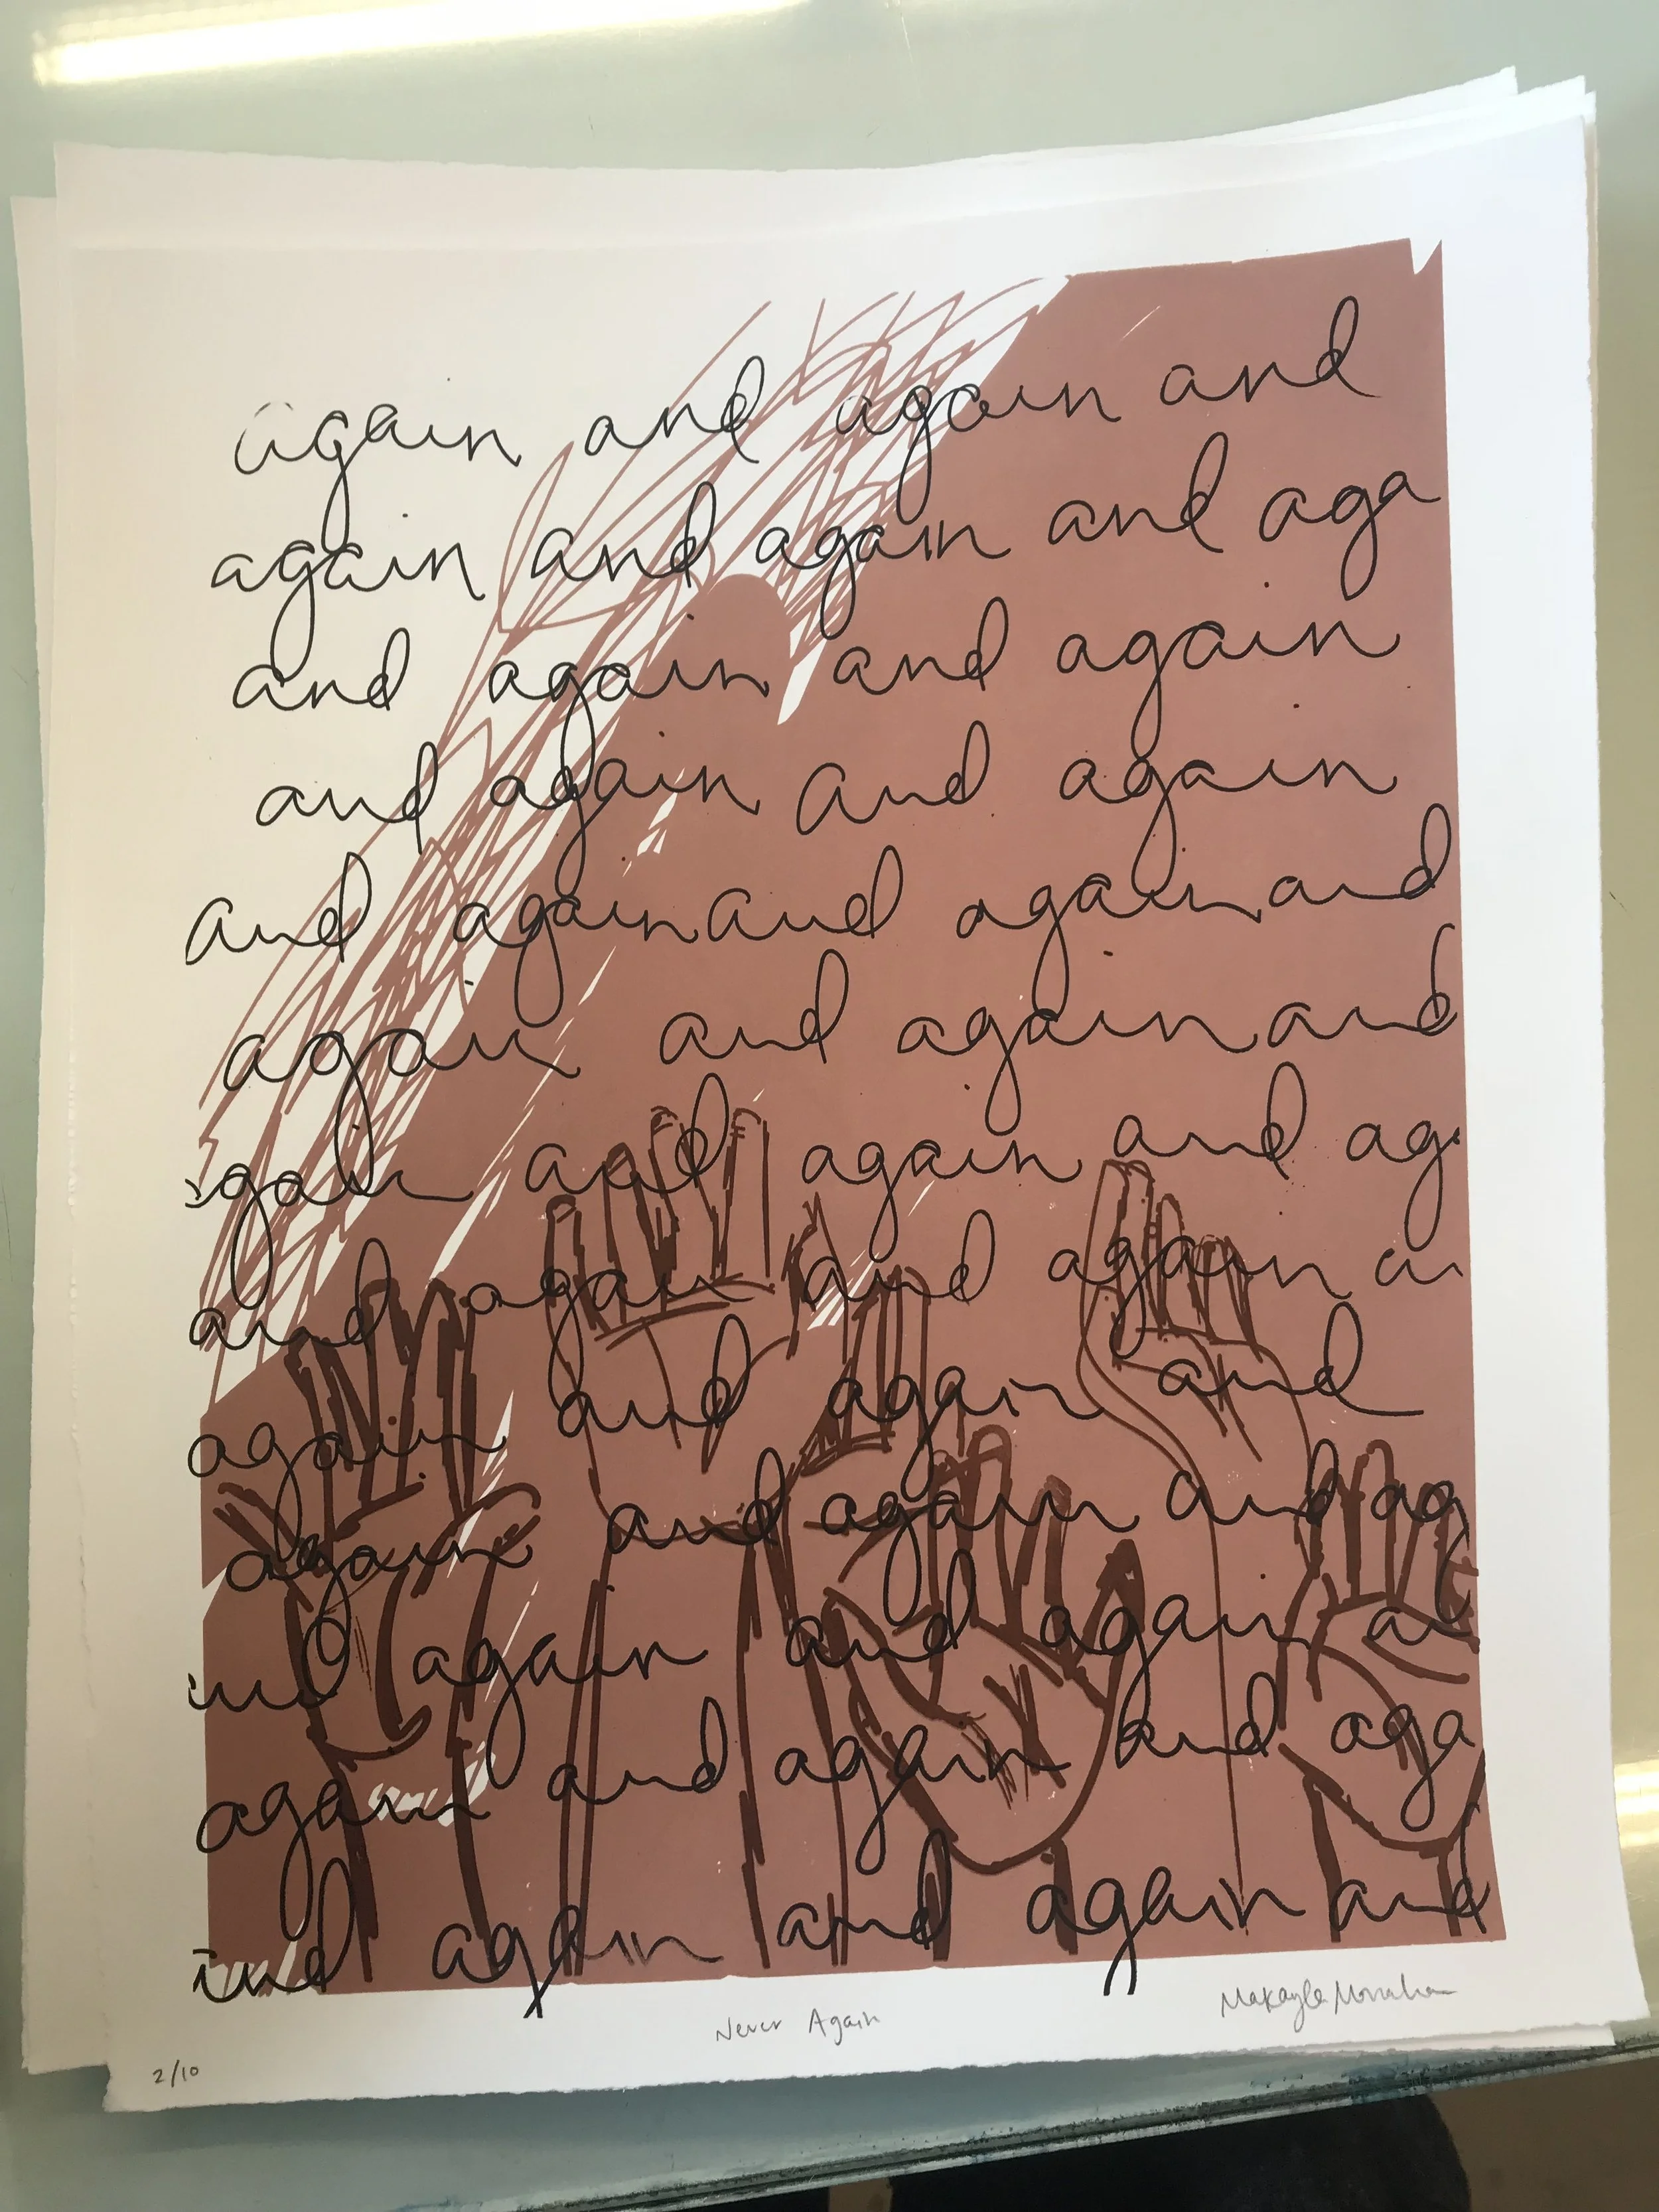 again and again and
again and again and aga
and again and again
and again and again
and again and again and
again and again and
again and again and ag
and again and again an
again and again and
again and again and ag
and again and again a
again and again and aga
and again and again and
Never Again
2/10